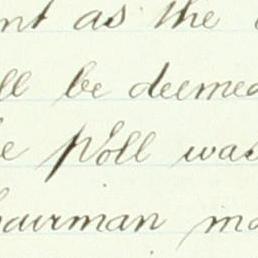 nt as the
ll be deemed
e Poll was
hairman ma